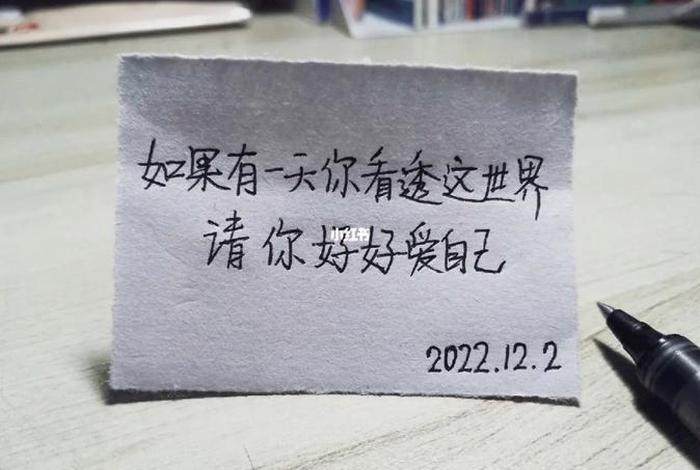 如果有一天你看透这世界
请你好好爱自己
小红书
2022.12.2